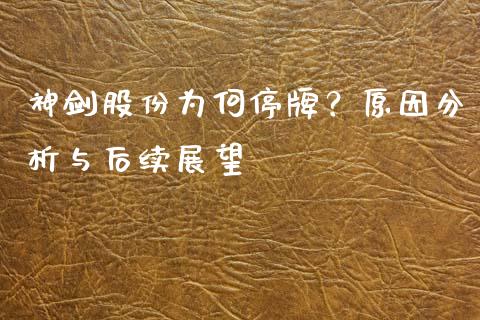 神剑股份为何停牌？原因分
析与后续展望